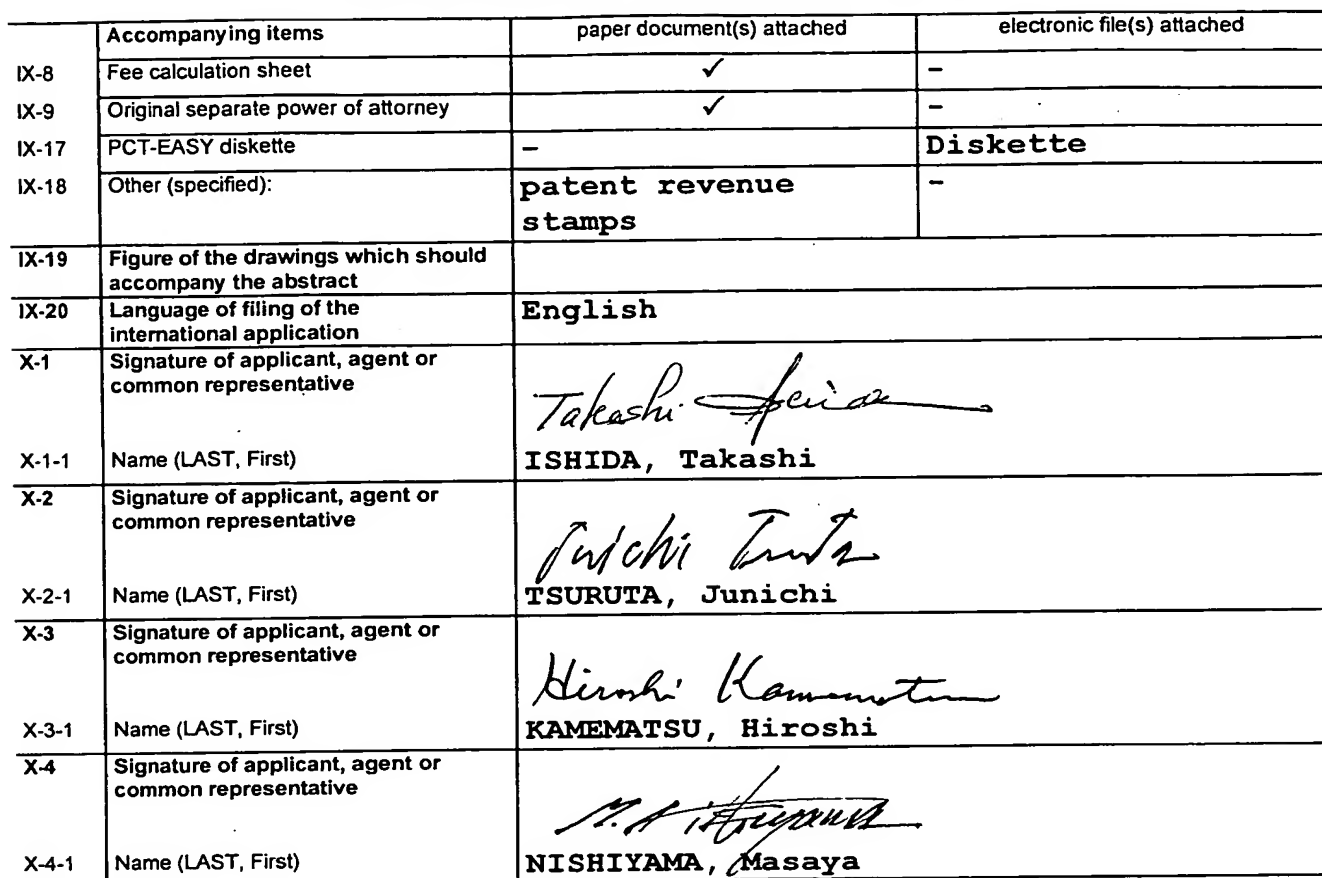 Accompanying items paper document(s) attached electronic file(s) attached
IX-8 Fee calculation sheet ✓ –
IX-9 Original separate power of attorney ✓ –
IX-17 PCT-EASY diskette – Diskette
IX-18 Other (specified): patent revenue –
stamps
IX-19 Figure of the drawings which should
accompany the abstract
IX-20 Language of filing of the English
international application
X-1 Signature of applicant, agent or
common representative
Takashi
X-1-1 Name (LAST, First) ISHIDA, Takashi
X-2 Signature of applicant, agent or
common representative
X-2-1 Name (LAST, First) TSURUTA, Junichi
X-3 Signature of applicant, agent or
common representative
Hiroshi Kamematsu
X-3-1 Name (LAST, First) KAMEMATSU, Hiroshi
X-4 Signature of applicant, agent or
common representative
X-4-1 Name (LAST, First) NISHIYAMA, Masaya